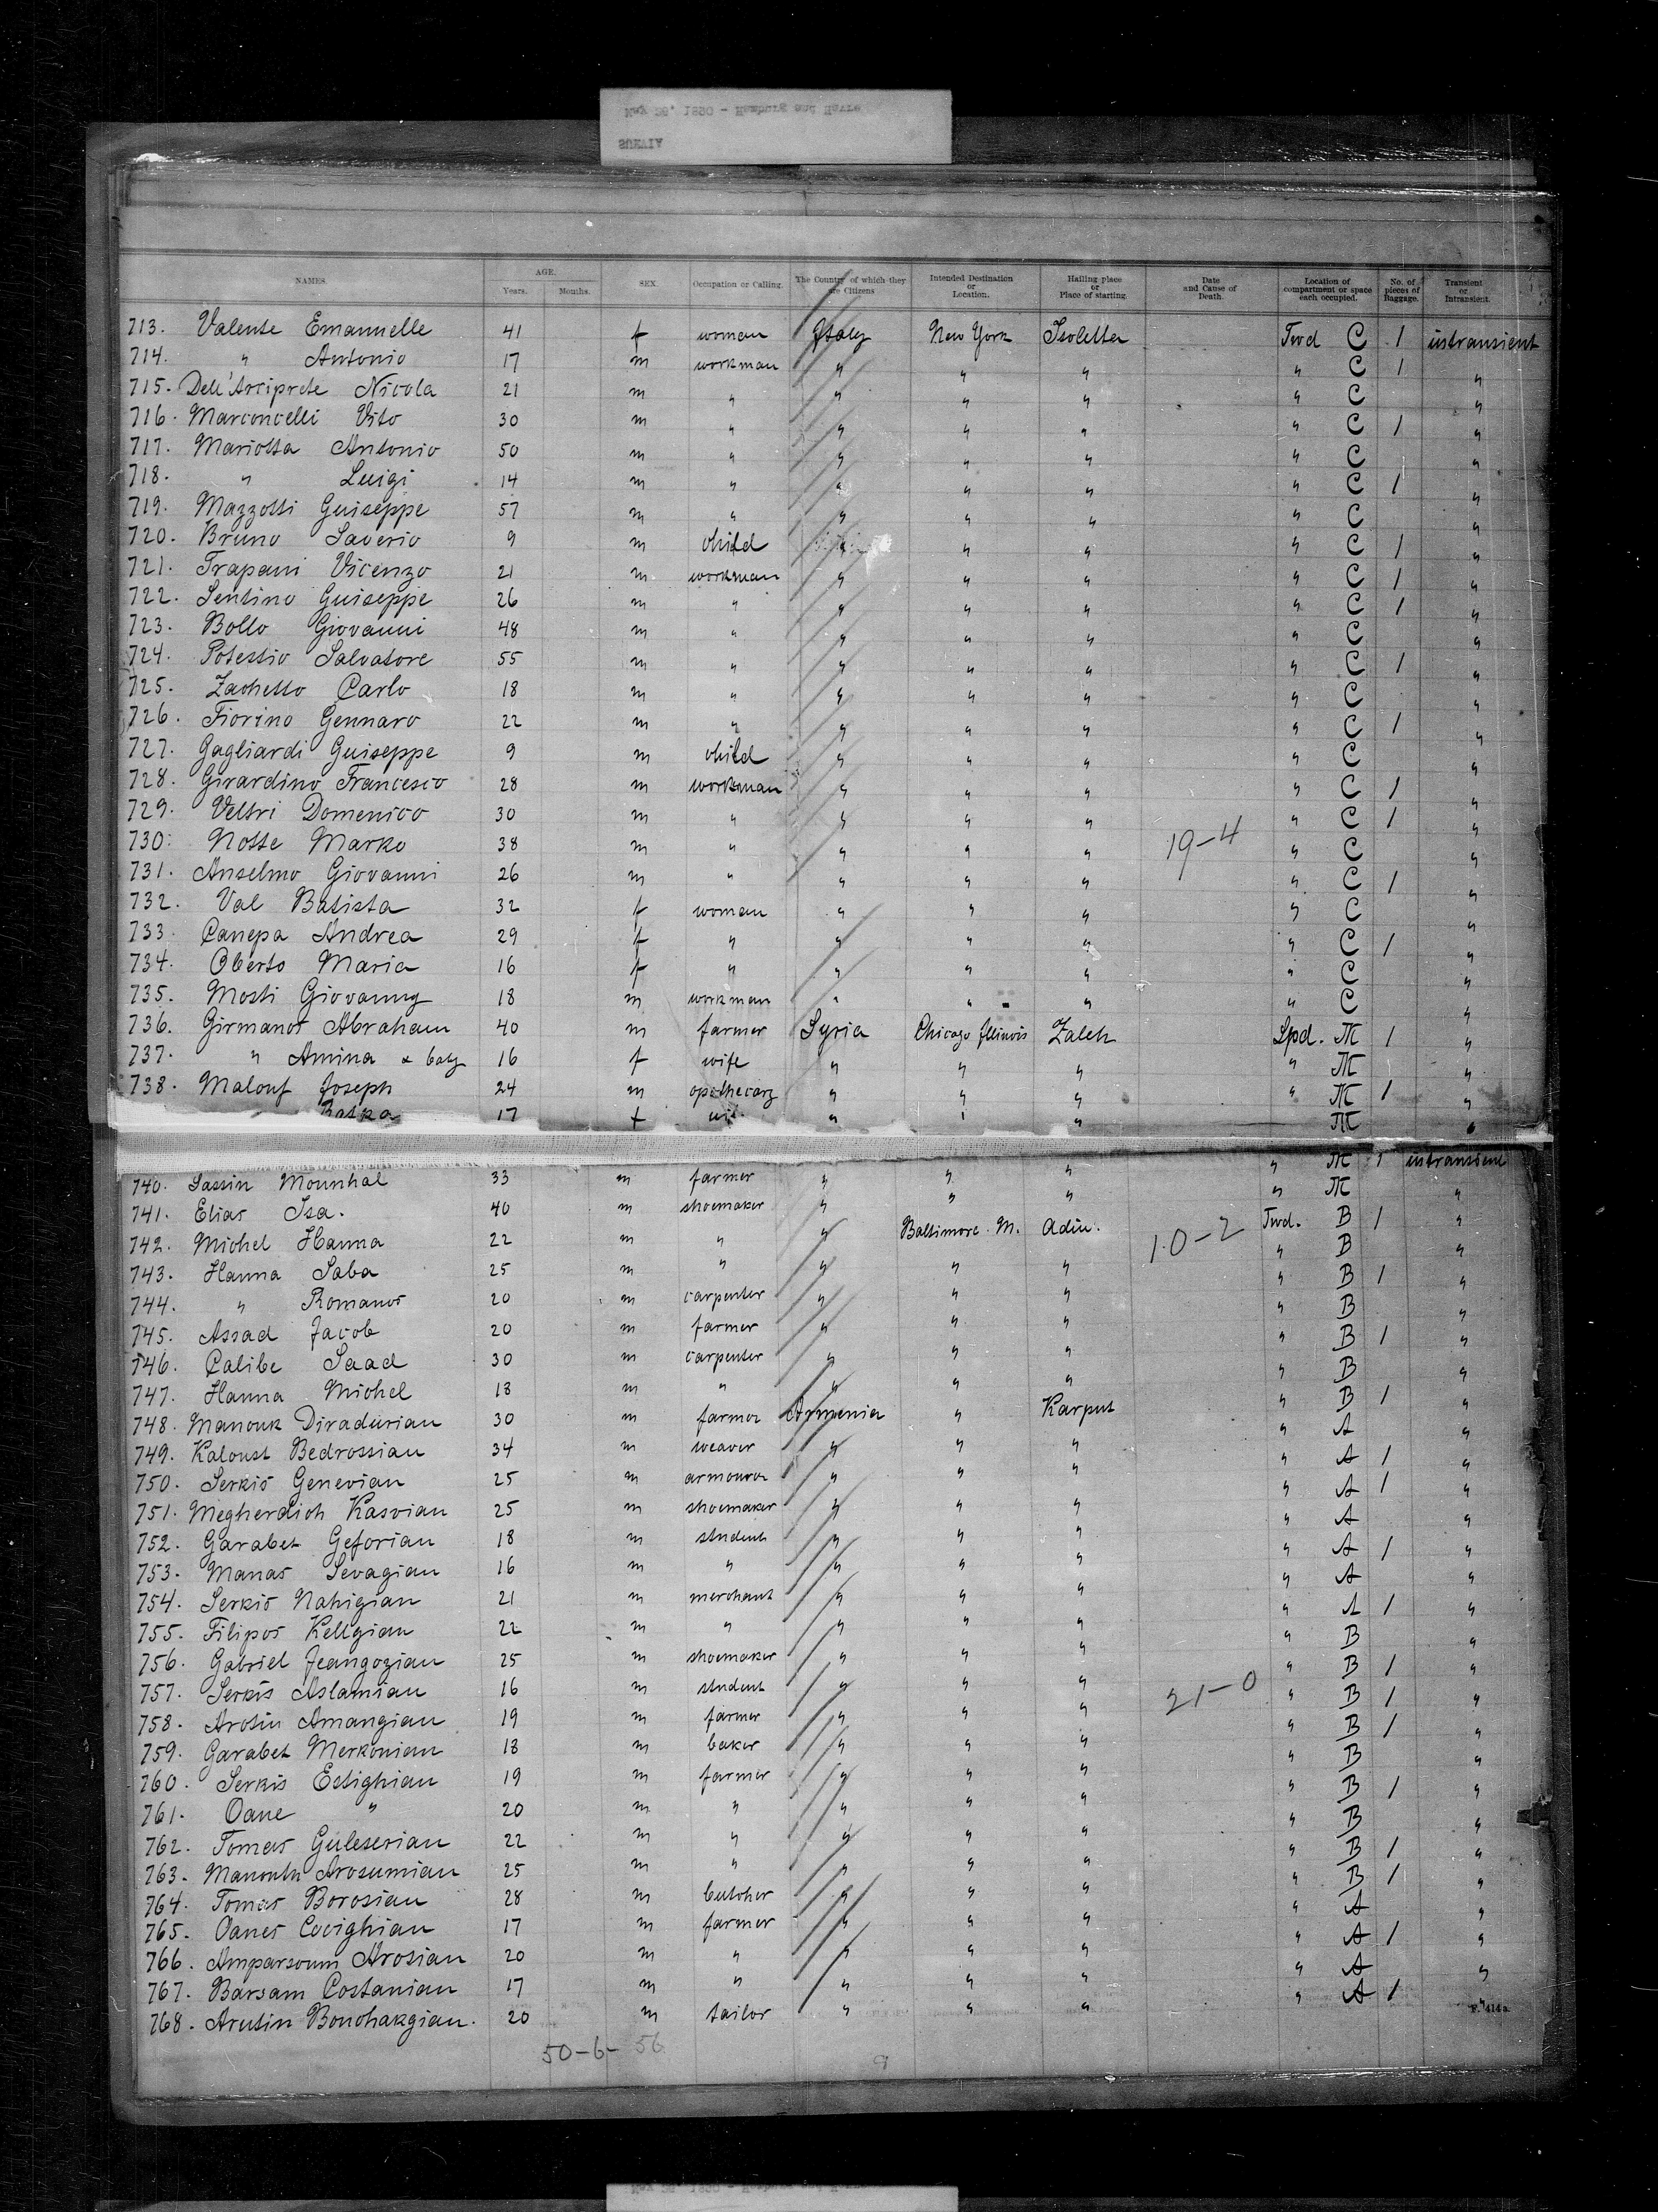 May 26, 1890 - Hamburg and Havre
SUEVIA
NAMES. AGE. Years. Months. SEX. Occupation or Calling. The Country of which they are Citizens Intended Destination or Location. Hailing place or Place of starting. Date and Cause of Death. Location of compartment or space each occupied. No. of pieces of Baggage. Transient or Intransient.
713. Valente Emannelle 41 f woman Italy New York Isoletta Twd C 1 intransient
714. " Antonio 17 m workman " " " " C 1 "
715. Dell'Arciprete Nicola 21 m " " " " " C "
716. Marconcelli Vito 30 m " " " " " C 1 "
717. Mariotta Antonio 50 m " " " " " C "
718. " Luigi 14 m " " " " " C 1 "
719. Mazzotti Guiseppe 57 m " " " " " C "
720. Bruno Saverio 9 m child " " " " C 1 "
721. Trapani Vicenzo 21 m workman " " " " C 1 "
722. Sentino Guiseppe 26 m " " " " " C 1 "
723. Bollo Giovanni 48 m " " " " " C "
724. Potestio Salvatore 55 m " " " " " C 1 "
725. Zachetto Carlo 18 m " " " " " C "
726. Fiorino Gennaro 22 m " " " " " C 1 "
727. Gagliardi Guiseppe 9 m child " " " " C "
728. Girardino Francesco 28 m workman " " " " C 1 "
729. Veltri Domenico 30 m " " " " " C 1 "
730. Notte Marko 38 m " " " " 19-4 " C "
731. Anselmo Giovanni 26 m " " " " " C 1 "
732. Val Batista 32 f woman " " " " C "
733. Canepa Andrea 29 f " " " " " C 1 "
734. Oberto Maria 16 f " " " " " C "
735. Mosti Giovanny 18 m workman " " " " C "
736. Girmanos Abraham 40 m farmer Syria Chicago Illinois Zaleh Spd. M 1 "
737. " Amina & baby 16 f wife " " " " M "
738. Malouf Joseph 24 m apothecary " " " " M 1 "
Batka 17 f " " M
" M 1 intransient
740. Sassin Mounhal 33 m farmer " " " " M "
741. Elias Isa. 40 m shoemaker " " "
742. Michel Hanna 22 m " " Baltimore M. Adin. 10-2 Twd. B 1 "
743. Hanna Saba 25 m " " " " " B "
744. " Romanos 20 m carpenter " " " " B 1 "
745. Assad Jacob 20 m farmer " " " " B "
746. Calibe Saad 30 m carpenter " " " " B 1 "
747. Hanna Michel 18 m " " " " " B "
748. Manouk Diradurian 30 m farmer Armenia " Karput " B 1 "
749. Kaloust Bedrossian 34 m weaver " " " " A "
750. Serkis Genevian 25 m armourer " " " " A 1 "
751. Megherdich Kasvian 25 m shoemaker " " " " A 1 "
752. Garabet Geforian 18 m student " " " " A "
753. Manas Sevagian 16 m " " " " " A 1 "
754. Serkis Nahigian 21 m merchant " " " " A "
755. Filipos Kellgian 22 m " " " " " A 1 "
756. Gabriel Jeangozian 25 m shoemaker " " " " B "
757. Serkis Aslamian 16 m student " " " 21-0 " B 1 "
758. Arotin Amangian 19 m farmer " " " " B 1 "
759. Garabet Merkonian 18 m baker " " " " B 1 "
760. Serkis Estighian 19 m farmer " " " " B "
761. Oane " 20 m " " " " " B 1 "
762. Tomas Guleserian 22 m " " " " " B "
763. Manouk Arosumian 25 m " " " " " B 1 "
764. Tomas Borosian 28 m butcher " " " " B 1 "
765. Oanes Covighian 17 m farmer " " " " A "
766. Amparsoum Arosian 20 m " " " " " A 1 "
767. Barsam Costanian 17 m " " " " " A "
768. Arutin Bouchakgian. 20 m tailor " " " " A 1 "
50-6- 56
9